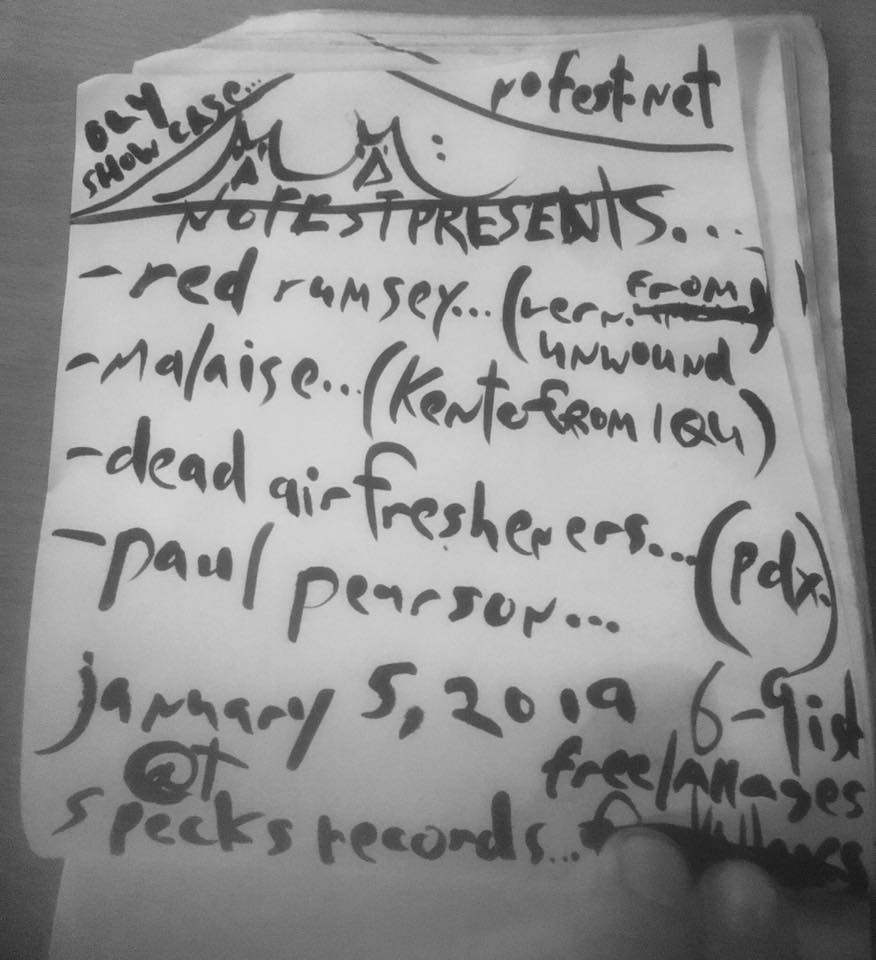 OLY
SHOW CASE...
nofest.net
NOFESTPRESENTS...
-red rumsey...(vern. FROM)
unwound
-Malaise...(KentofROM IQU)
-dead air fresheners...(pdx.)
-paul pearson...
january 5, 2019 6-9ish
@T free/Allages
specks records...